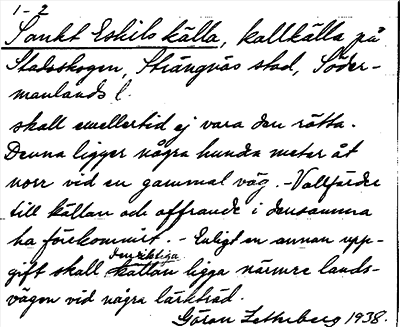 1-2
Sankt Eskils källa, kallkälla på
Stadsskogen, Strängnäs stad, Söder-
manlands l.
skall emellertid ej vara den rätta.
Denna ligger några hundra meter åt
norr vid en gammal väg. - Vallfärder
till källan och offrande i densamma
ha förekommit. - Enligt en annan upp-
den riktiga
gift skall källan ligga närmre lands-
vägen vid några lärkträd.
Göran Zetherberg 1938.